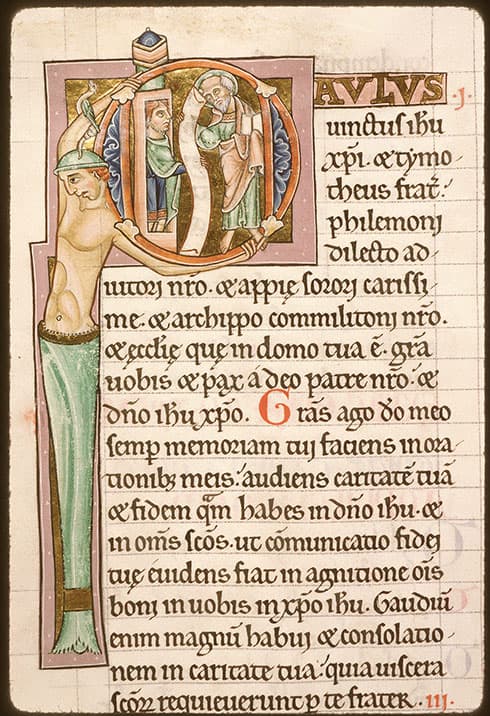 PAVLVS .I.
uinctus ihu
xpi. & tymo
theus frat̄:
philemoni
dilecto ad
iutori nr̄o. & appię sorori carissi
me. & archippo commilitoni nr̄o.
& ęcclię que in domo tua ē. gr̄a
uobis & pax á deo patre nr̄o. &
dn̄o ihu xp̄o. Gr̄as ago d̄o meo
semp̄ memoriam tui faciens in ora
tionib; meis: audiens caritatē tuā
& fidem qm̄ habes in dn̄o ihu. &
in om̄s sc̄os. ut cōmunicatio fidei
tuę éuidens fiat in agnitione om̄s
boni in uobis in xp̄o ihu. Gaudiū
enim magnū habui & consolatio
nem in caritate tua: quia uiscera
sc̄oꝝ requieuerunt ꝑ te frater. .III.